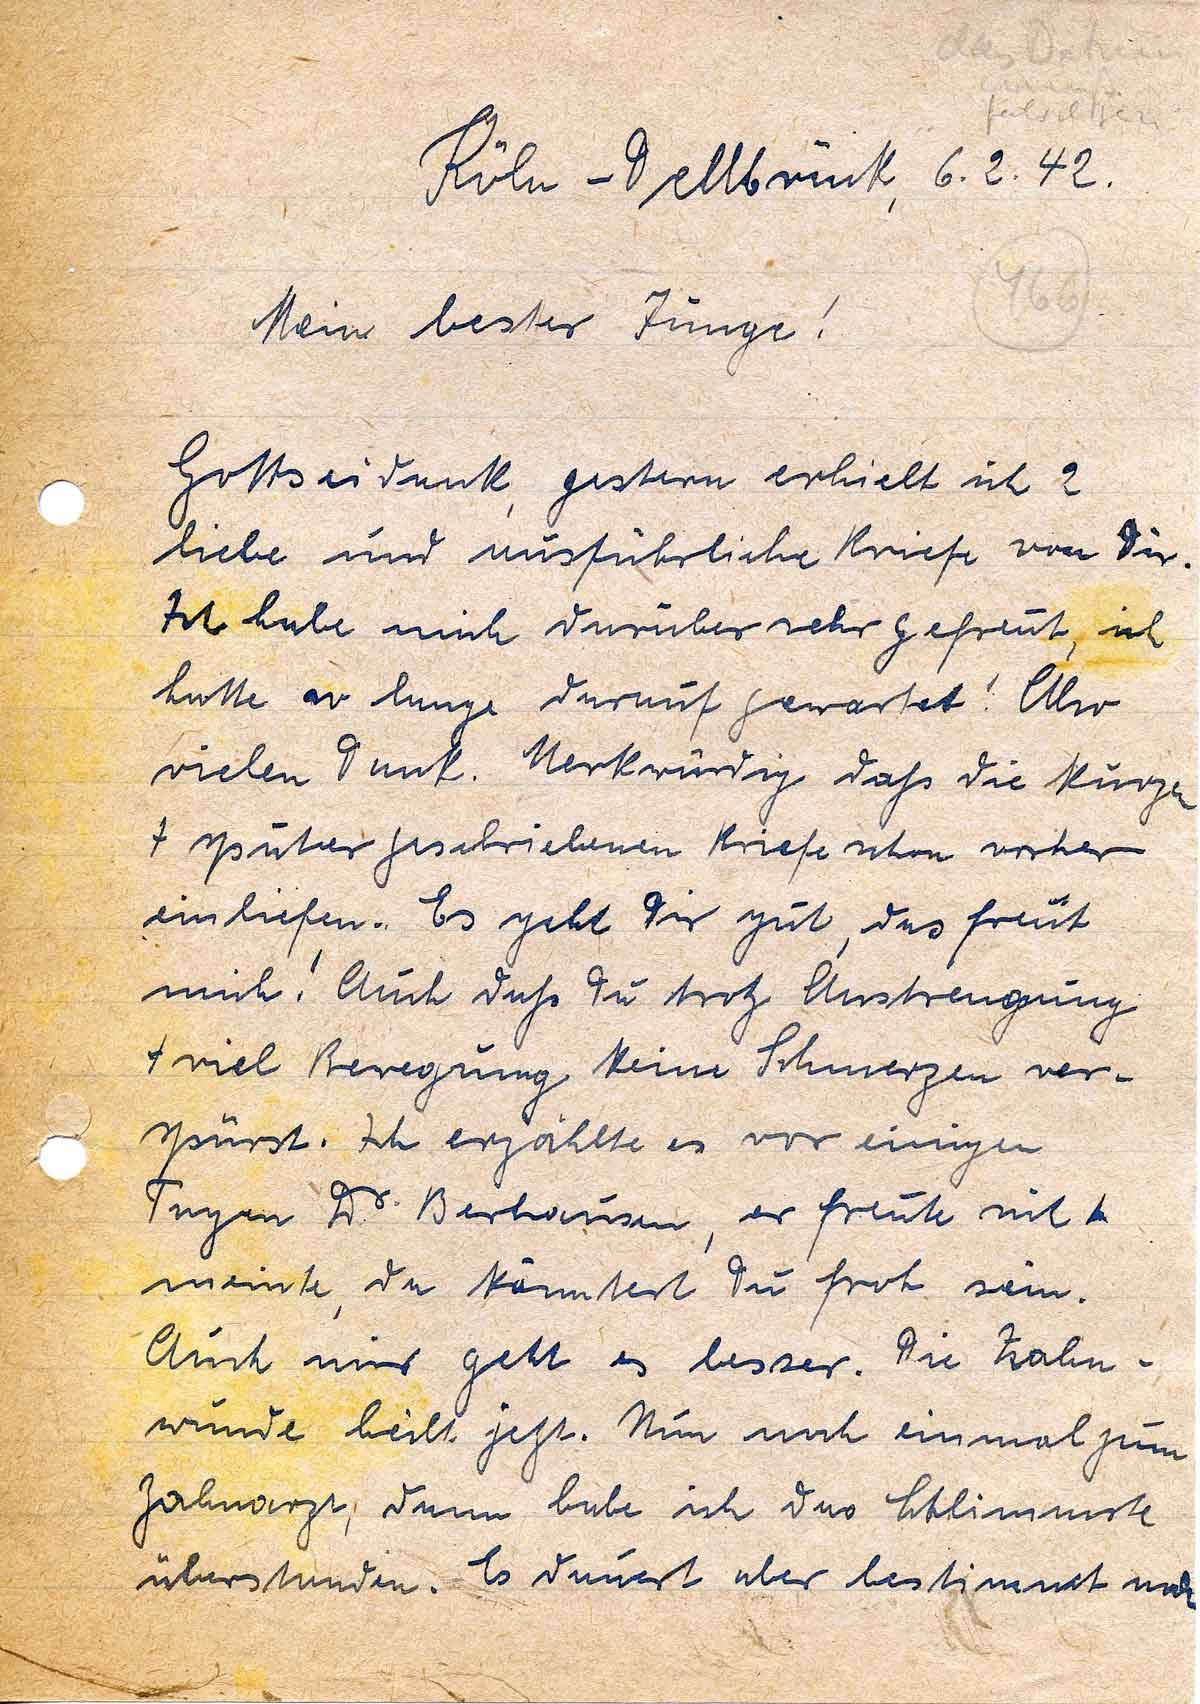 das Datum
Köln-Dellbrück, 6.2.42.
466
Mein bester Junge!
Gottseidank, gestern erhielt ich 2
liebe und ausführliche Briefe von Dir.
Ich habe mich darüber sehr gefreut, ich
hatte so lange darauf gewartet! Also
vielen Dank. Merkwürdig dass die kurzen
+ später geschriebenen Briefe schon vorher
einliefen. Es geht Dir gut, das freut
mich! Auch dass Du trotz Anstrengung
+ viel Bewegung keine Schmerzen ver-
spürst. Ich erzählte es vor einigen
Tagen Dr. Berhausen, er freute sich +
meinte, da könntest Du froh sein.
Auch mir geht es besser. Die Zahn-
wunde heilt jetzt. Nun noch einmal zum
Zahnarzt, dann habe ich das Schlimmste
überstanden. Es dauert aber bestimmt noch